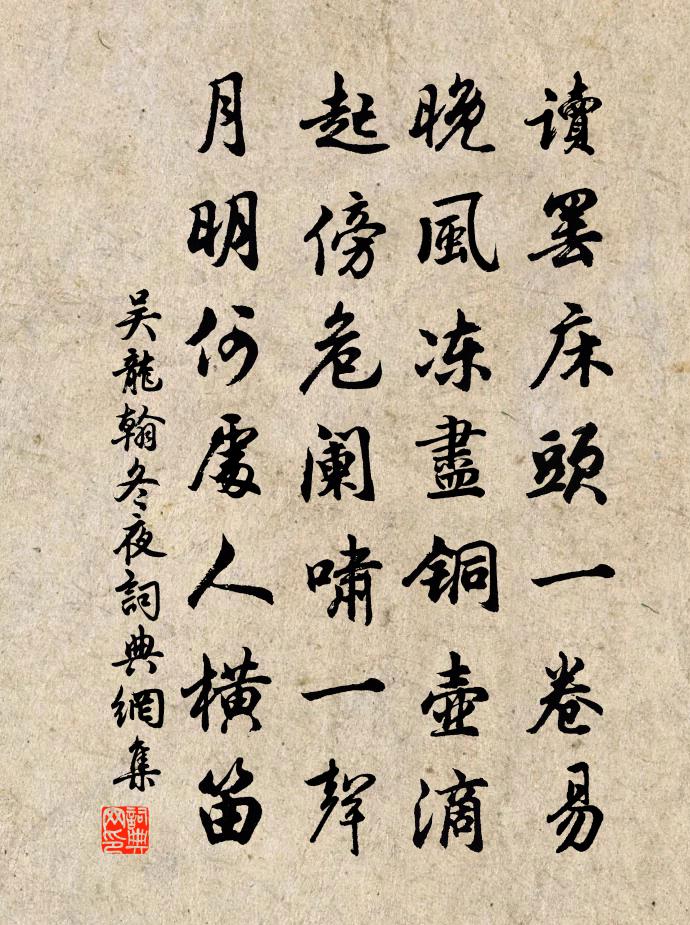 讀罢床頭一卷易
晚風冻盡铜壺滴
起傍危阑嘯一聲
月明何處人横笛
吴龍翰冬夜詞典網集
詞典网印